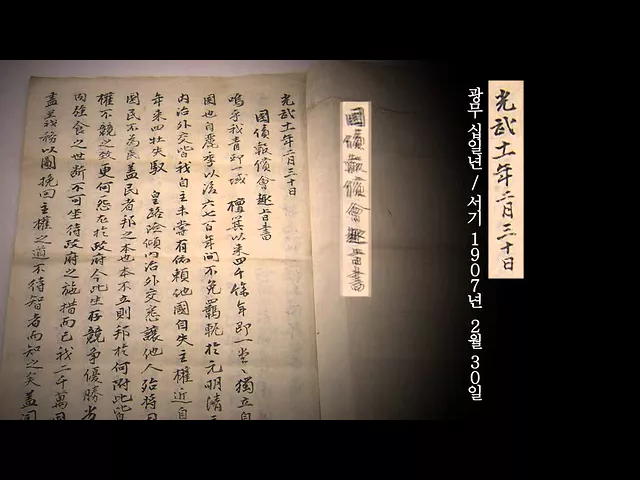 光武十一年二月三十日
광무 십일년 / 서기 1907년 2월 30일
國債報償會趣旨書
光武十一年二月三十日
國債報償會趣旨書
嗚乎我靑邱一域 檀箕以來四千餘年卽一堂〻獨立自
國也自麗季以後六七百年間不免羈軛於元明淸三
內治外交皆我自主未嘗有依賴他國自失主權近自
年來四牡失馭 皇路險傾內治外交悉讓他人殆將日
國民不爲民蓋民者邦之本也本不立則邦於何附此皆
權不競之效更何怨在於政府今此生存競爭優勝劣
肉强食之世斷不可坐待政府之施措而已我二千萬同
盡是我務以圖挽回主權之道不待智者而知之矣蓋聞